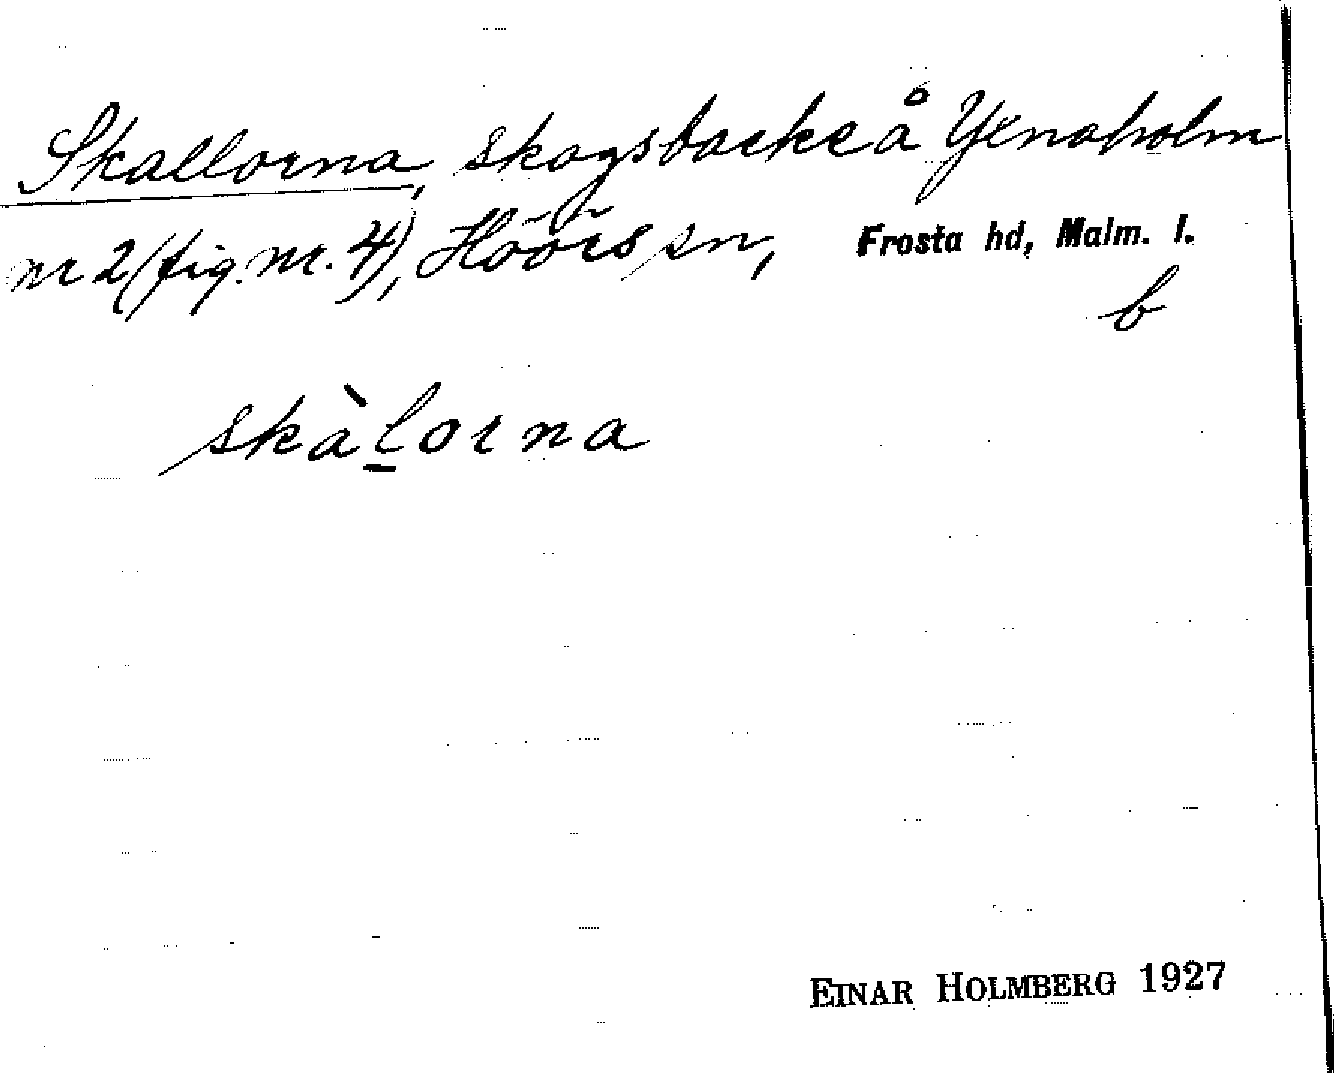 Skallorna, skogsbacke å Yxnaholm
nr 2 (fig. nr. 4), Höörs sn, Frosta hd, Malm. l.
b
skàlorna
EINAR HOLMBERG 1927